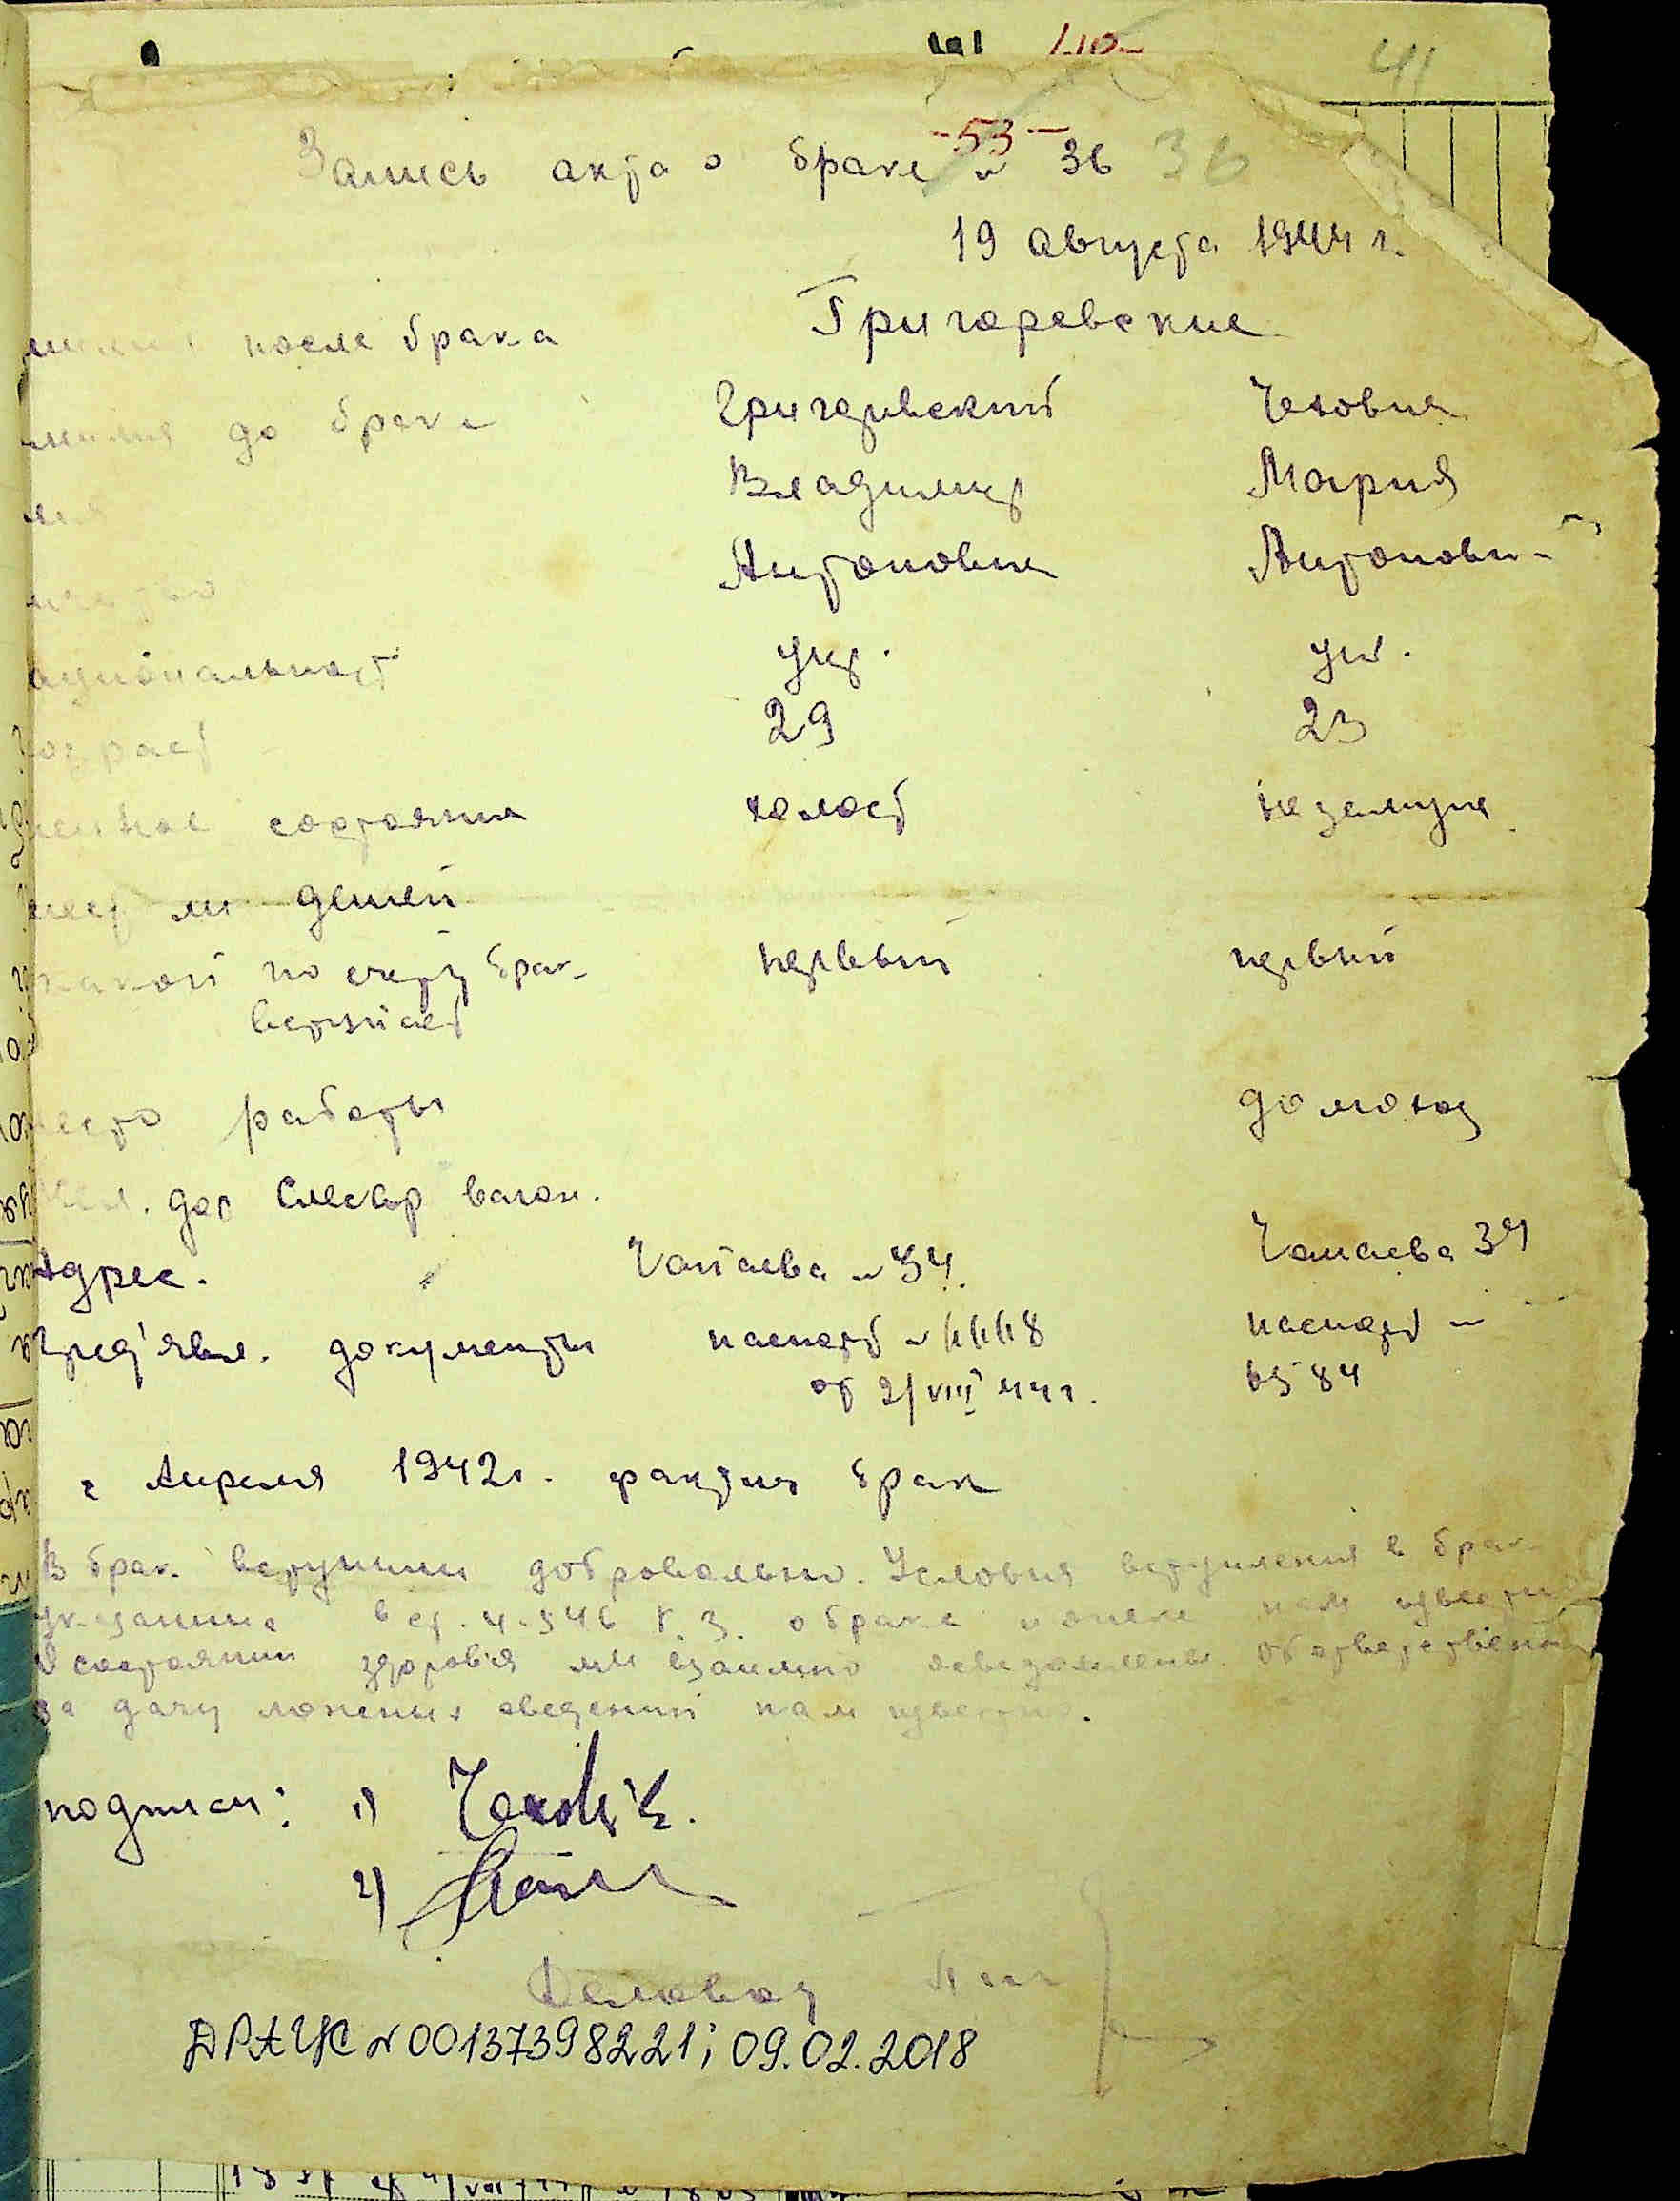 41
-53-
Запись акта о браке № 36 36
19 августа 1944 г.
после брака Григоревские
до брака Григоревский
Владимир Мария
Антонович Антонов
национальност укр. ук.
возраст 29 23
состояние холост незамуж
ли детей
какой по счету брак первый первый
вступает
место работы домохоз
дор слесар вагон.
Адрес. Чапаева № 34. Чапаева 34
Пред'явл. документы паспорт № 4448 паспорт №
от 2/VIII 44 г. 6584
с Апреля 1942 г. фактич брак
В брак вступили добровольно. Условия вступления в брак
указанные в ст. 4-546 К. З. о браке и опеке нам известны
О состоянии здоров'я мы взаимно осведомлены. Об ответственности
за дачу ложных сведений нам известно.
подписи: 1)
2)
ДРАЦС № 00137398221; 09.02.2018